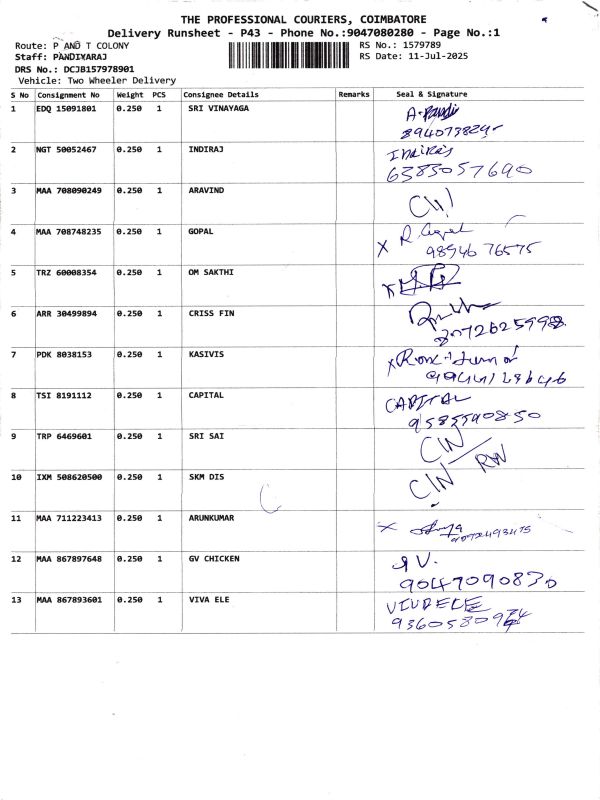 THE PROFESSIONAL COURIERS, COIMBATORE
Delivery Runsheet - P43 - Phone No.:9047080280 - Page No.:1
Route: P AND T COLONY
RS No.: 1579789
Staff: PANDIYARAJ
RS Date: 11-Jul-2025
DRS No.: DCJB157978901
Vehicle: Two Wheeler Delivery
S No Consignment No Weight PCS Consignee Details Remarks Seal & Signature
1 EDQ 15091801 0.250 1 SRI VINAYAGA
A. Pandi
2 NGT 50052467 0.250 1 INDIRAJ
Indiraj
6383057690
3 MAA 708090249 0.250 1 ARAVIND
4 MAA 708748235 0.250 1 GOPAL
X R. Gopal
98946 76575
5 TRZ 60008354 0.250 1 OM SAKTHI
X
6 ARR 30499894 0.250 1 CRISS FIN
7 PDK 8038153 0.250 1 KASIVIS
X
8 TSI 8191112 0.250 1 CAPITAL
CAPITAL
9 TRP 6469601 0.250 1 SRI SAI
CIN
10 IXM 508620500 0.250 1 SKM DIS
CIN RW
11 MAA 711223413 0.250 1 ARUNKUMAR
X
12 MAA 867897648 0.250 1 GV CHICKEN
9047090830
13 MAA 867893601 0.250 1 VIVA ELE